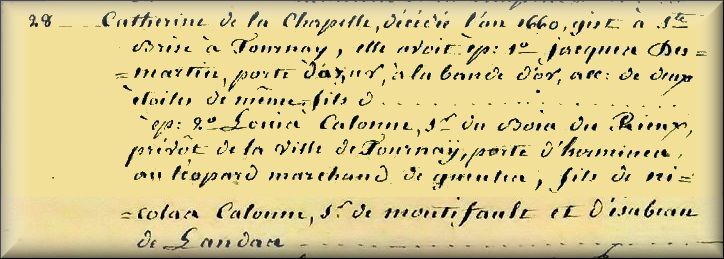 28 __ Catherine de la Chapelle, décédée l'an 1660, gist à Ste
Brise à Tournay, elle avoit ép: 1o jacques Des=
=martin, porte d'azur, à la bande d'or, acc: de deux
étoiles de même fils d . . . . . . . . . . . . . . .
à ép: 2o Louis Calonne, Sr du Bois du Rieux,
prévôt de la ville de Tournaÿ, porte d'hermines,
au léopard marchand de gueules, fils de ni=
=colas Calonne, Sr de montifault et d'isabeau
de Landas